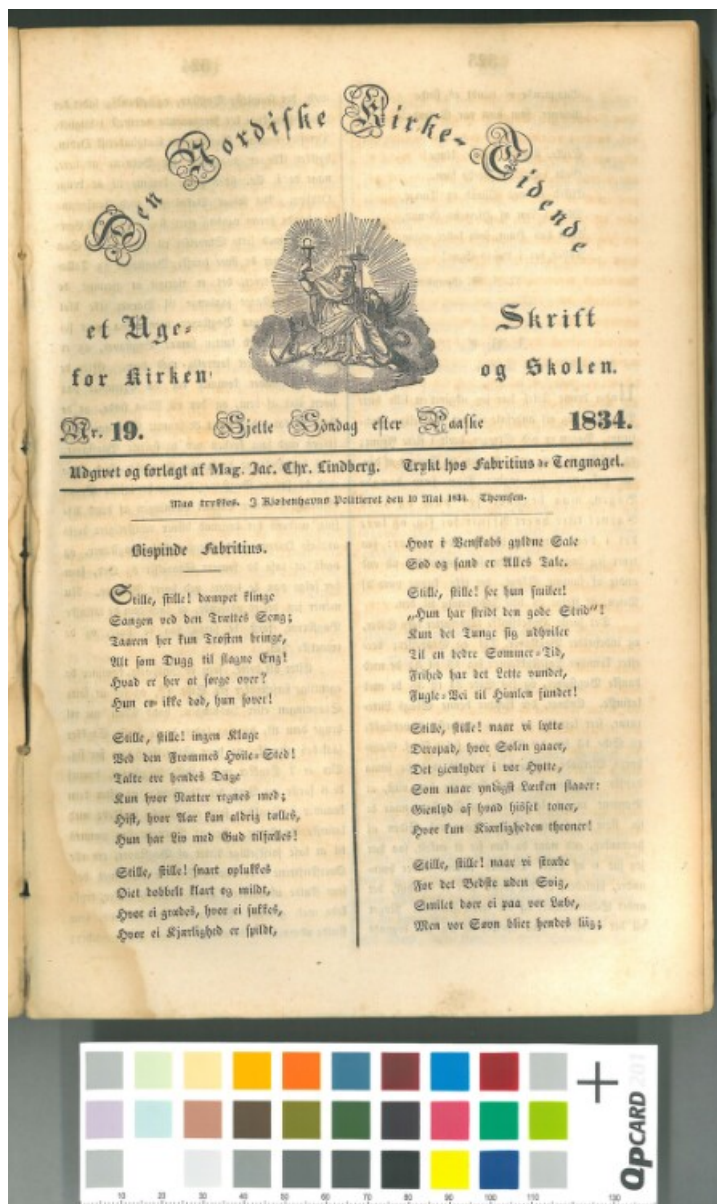 Den Nordiske Kirke-Tidende
et Uge-
Skrift
for Kirken
og Skolen.
Nr. 19.
Sjette Söndag efter Paaske
1834.
Udgivet og forlagt af Mag. Jac. Chr. Lindberg. Trykt hos Fabritius de Tengnagel.
Maa trykkes. I Kiøbenhavns Politieret den 10 Mai 1834. Thomsen.
Bispinde Fabritius.
Stille, stille! dæmpet klinge
Sangen ved den Trættes Seng;
Taaren her kun Trosten bringe,
Alt som Dugg til slagne Eng!
Hvad er her at sørge over?
Hun er ikke død, hun sover!
Stille, stille! ingen Klage
Ved den Frommes Hvile-Sted!
Talte ere hendes Dage
Kun hvor Nætter regnes med;
Hist, hvor Aar kan aldrig tælles,
Hun har Liv med Gud tilfælles!
Stille, stille! snart oplukkes
Øiet dobbelt klart og mildt,
Hvor ei grædes, hvor ei sukkes,
Hvor ei Kjærlighed er spildt,
Hvor i Venskabs gyldne Sale
Sød og sand er Alles Tale.
Stille, stille! see hun smiler!
„Hun har stridt den gode Strid"!
Kun det Tunge sig udhviler
Til en bedre Sommer-Tid,
Frihed har det Lette vundet,
Fugle-Vei til Himlen fundet!
Stille, stille! naar vi lytte
Deropad, hvor Solen gaaer,
Det gienlyder i vor Hytte,
Som naar yndigst Lærken slaaer:
Gienlyd af hvad hisset toner,
Hvor kun Kiærligheden throner!
Stille, stille! naar vi stræbe
For det Bedste uden Svig,
Smilet døer ei paa vor Læbe,
Men vor Søvn bliver hendes liig;
10 20 30 40 50 60 70 80 90 100 110 130
QPCARD 201